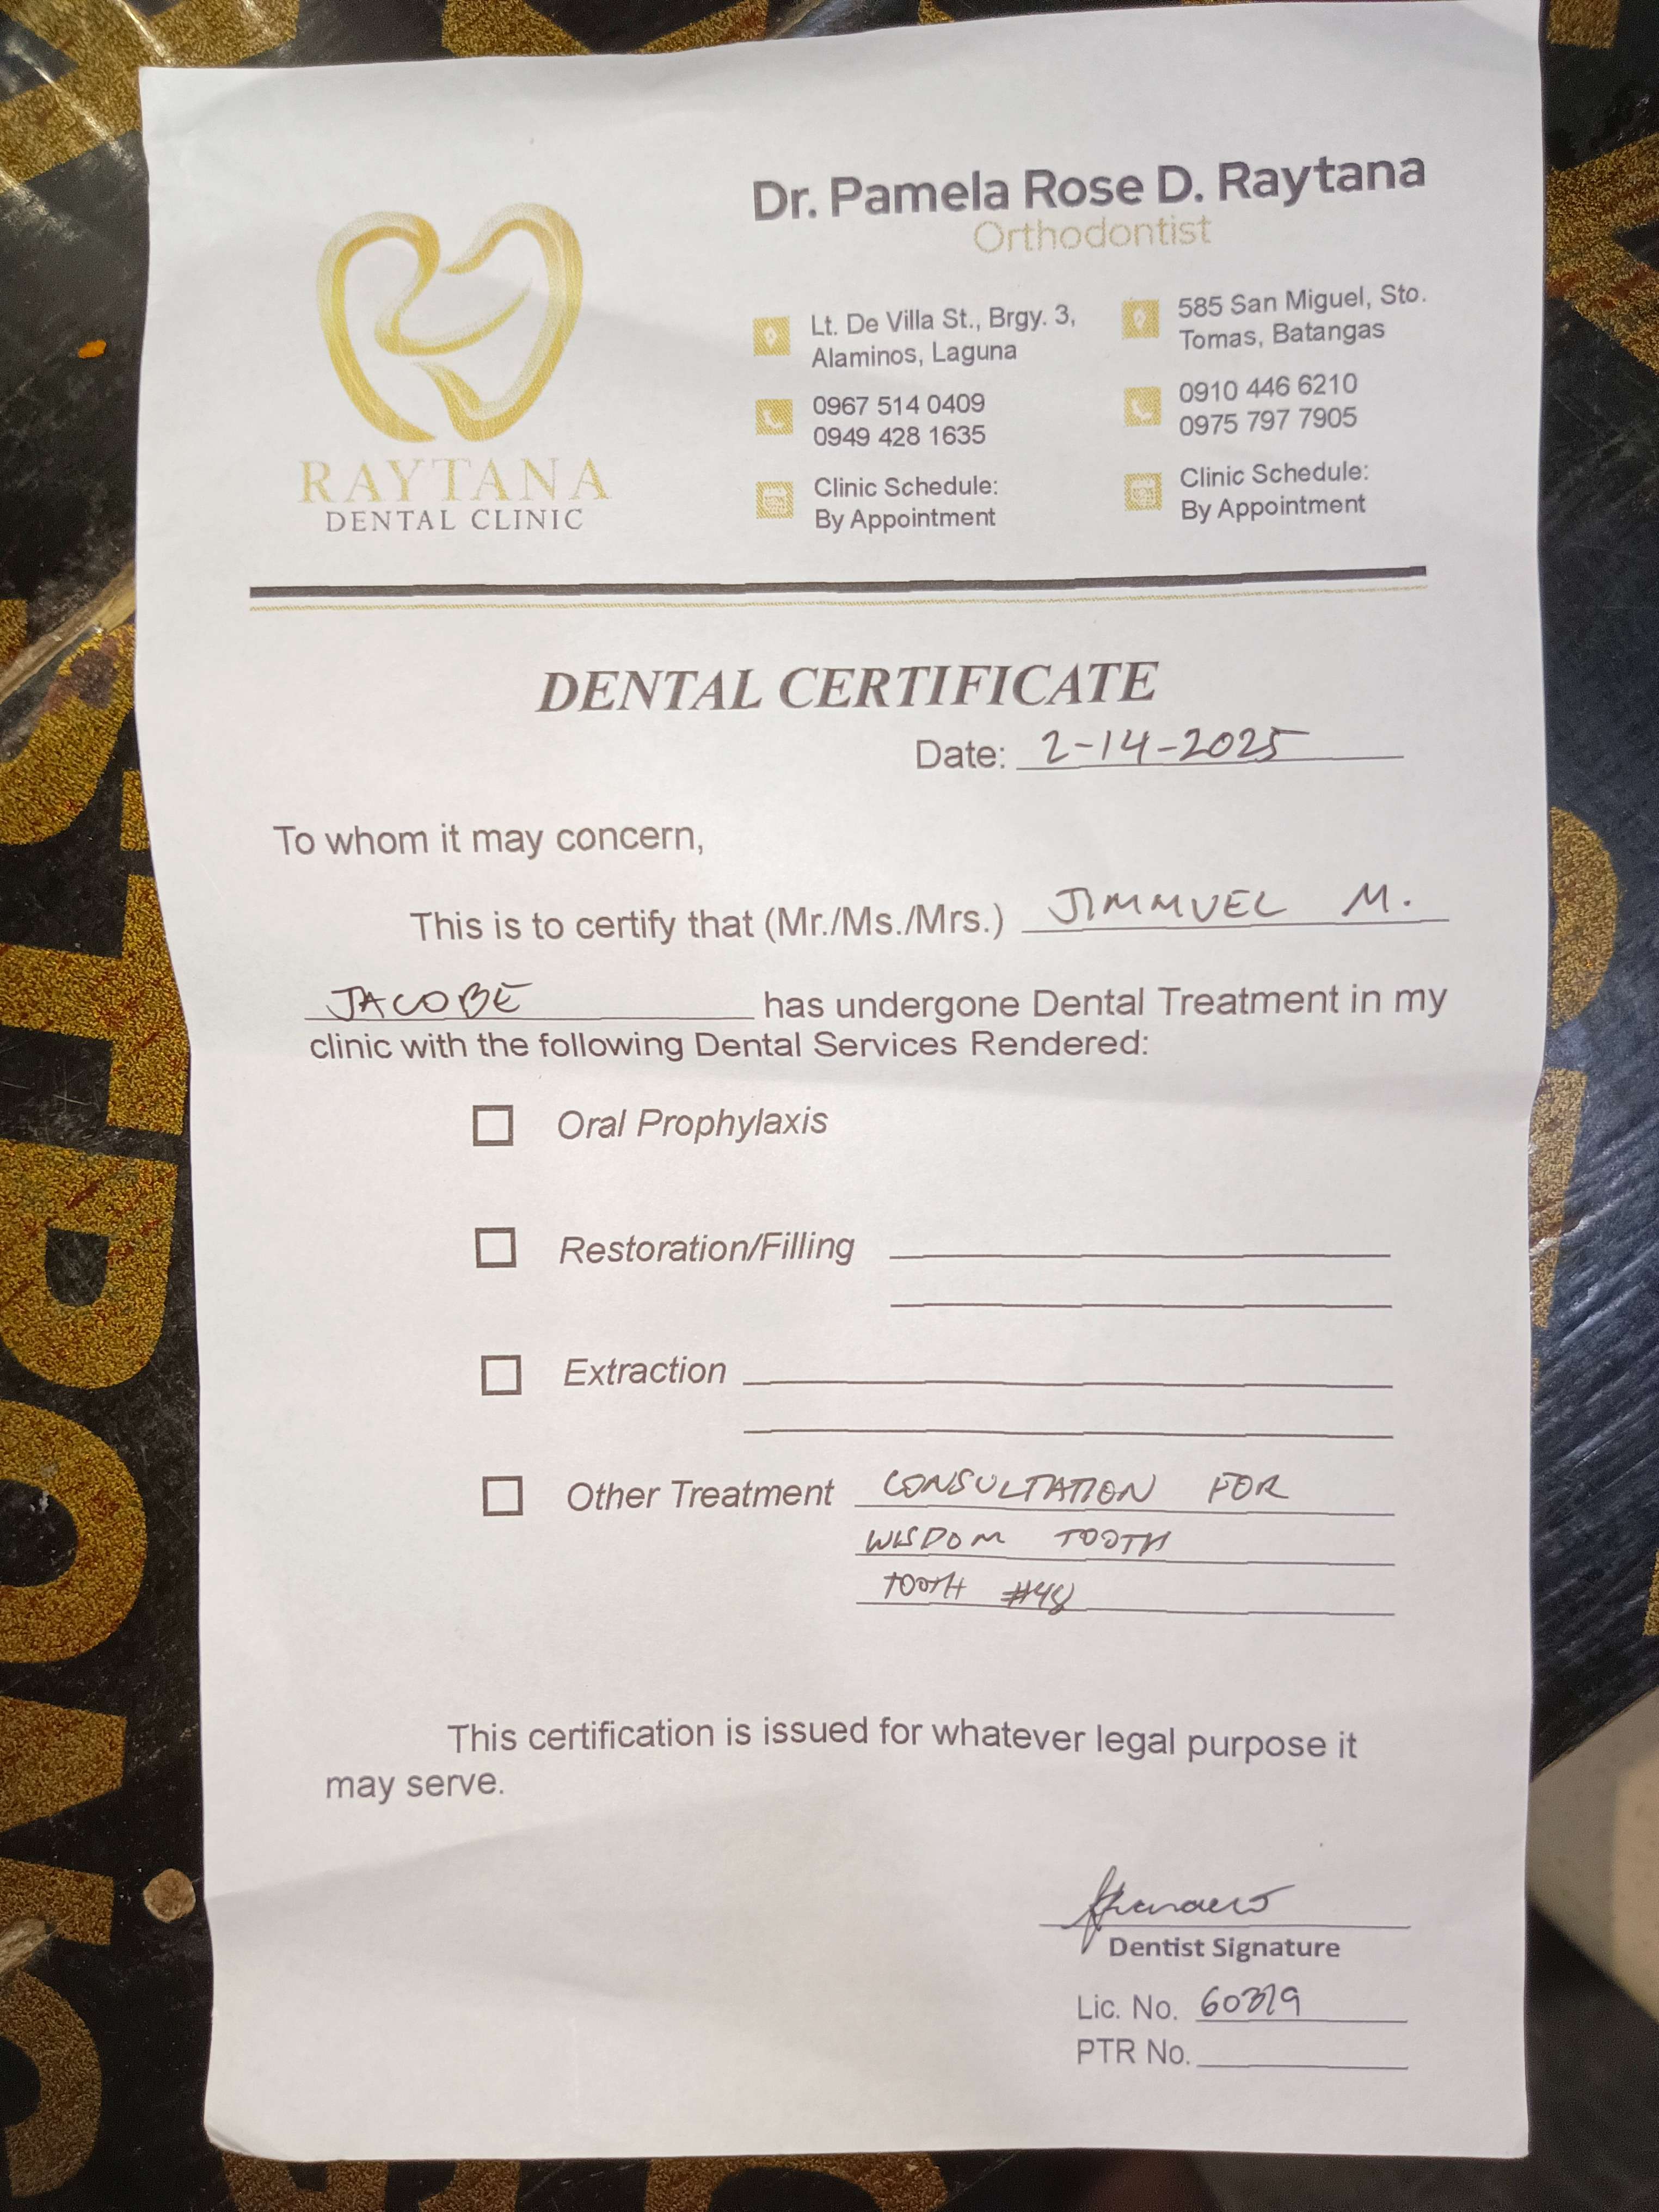 Dr. Pamela Rose D. Raytana
Orthodontist
RAYTANA
DENTAL CLINIC
Lt. De Villa St., Brgy. 3,
Alaminos, Laguna
0967 514 0409
0949 428 1635
Clinic Schedule:
By Appointment
585 San Miguel, Sto.
Tomas, Batangas
0910 446 6210
0975 797 7905
Clinic Schedule:
By Appointment
DENTAL CERTIFICATE
Date: 2-14-2025
To whom it may concern,
This is to certify that (Mr./Ms./Mrs.) JIMMUEL M.
JACOBE has undergone Dental Treatment in my
clinic with the following Dental Services Rendered:
Oral Prophylaxis
Restoration/Filling
Extraction
Other Treatment CONSULTATION FOR
WISDOM TOOTH
TOOTH #48
This certification is issued for whatever legal purpose it
may serve.
Dentist Signature
Lic. No.
PTR No.